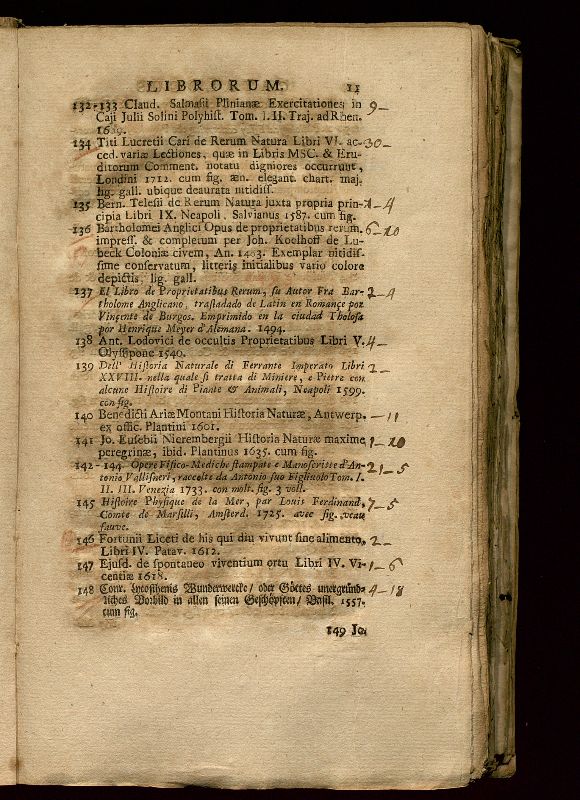 LIBRORUM. 11
132-133 Claud. Salmasii Plinianæ Exercitationes in 9-
Caji Julii Solini Polyhist. Tom. I. II. Traj. ad Rhen.
1689.
134 Titi Lucretii Cari de Rerum Natura Libri VI. ac- 30-
ced. variæ Lectiones, quæ in Libris MSC. & Eru-
ditorum Comment. notatu digniores occurrunt,
Londini 1712. cum fig. æn. elegant. chart. maj.
lig. gall. ubique deaurata nitidiss.
135 Bern. Telesii de Rerum Natura juxta propria prin- 1-4
cipia Libri IX. Neapoli, Salvianus 1587. cum fig.
136 Bartholomei Anglici Opus de proprietatibus rerum. 6-20
impress. & completum per Joh. Koelhoff de Lu-
beck Coloniæ civem, An. 1483. Exemplar nitidis-
sime conservatum, litteris initialibus vario colore
depictis, lig. gall.
137 El Libro de Proprietatibus Rerum, su Autor Fra Bar- 2-4
tholome Anglicano, trasladado de Latin en Romançe por
Vinçente de Burgos. Emprimido en la ciudad Tholosa
por Henrique Meyer d'Alemana. 1494.
138 Ant. Lodovici de occultis Proprietatibus Libri V. 4-
Olyssipone 1540.
139 Dell' Historia Naturale di Ferrante Imperato Libri 2-
XXVIII. nella quale si tratta di Miniere, e Pietre con
alcune Histoire di Piante & Animali, Neapoli 1599.
con fig.
140 Benedicti Ariæ Montani Historia Naturæ, Antwerp. -11
ex offic. Plantini 1601.
141 Jo. Eusebii Nierembergii Historia Naturæ maxime 1-20
peregrinæ, ibid. Plantinus 1635. cum fig.
142-144 Opere Fisico-Mediche stampate e Manoscritte d'An- 21-5
tonio Vallisneri, raccolte da Antonio suo Figliuolo Tom. I.
II. III. Venezia 1733. con molt. fig. 3 voll.
145 Histoire Physique de la Mer, par Louis Ferdinand. 7-5
Comte de Marsilli, Amsterd. 1725. avec fig. veau
fauve.
146 Fortunii Liceti de his qui diu vivunt sine alimento, 2-
Libri IV. Patav. 1612.
147 Ejusd. de spontaneo viventium ortu Libri IV. Vi- 1-6
centiæ 1618.
148 Conr. Lycosthenis Wunderwercke/ oder Gottes unergründ- 4-18
liches Vorbild in allen seinen Geschöpffen/ Basil. 1557.
cum fig.
149 Jo.